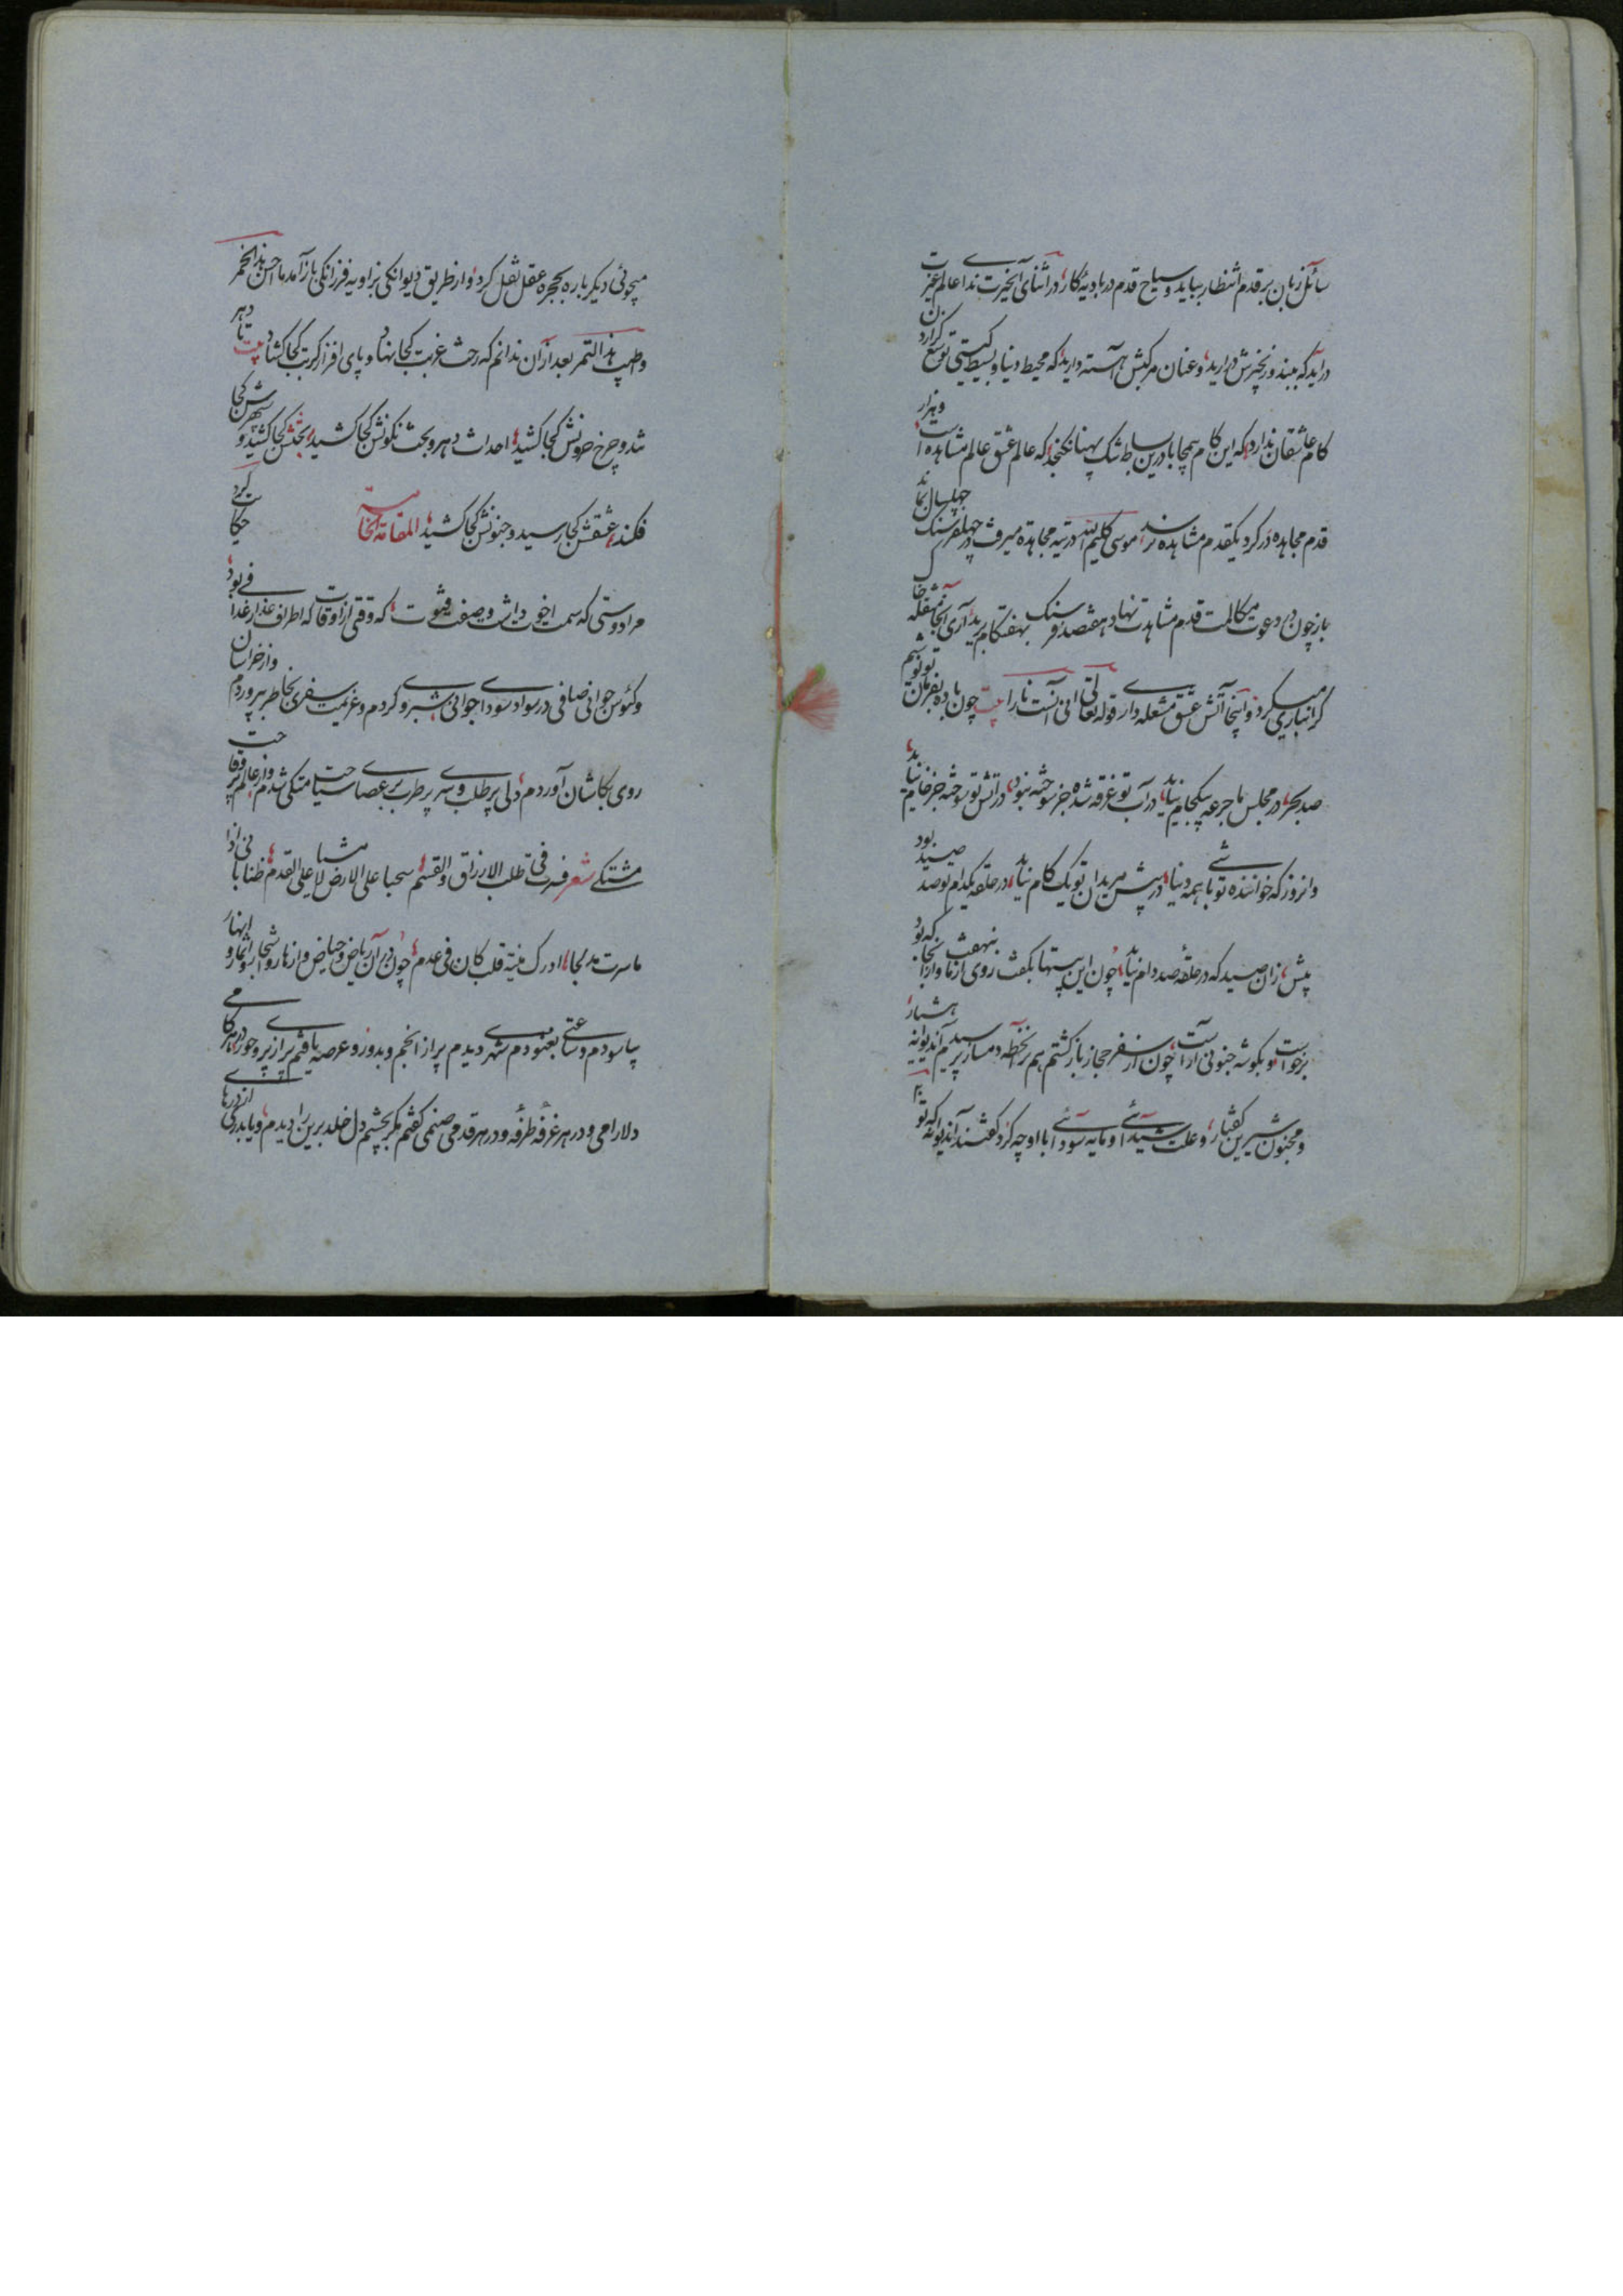 سائل زبان بر قدم انتظار بپاید و سیاح قدم در بادیهٔ کار، در اثنای این حیرت ندا عالم عزت
در آید که ببند زنجیرش در آرید، و عنان مرکبش آهسته دارید، که محیط دنیا و بسیط گیتی توسع گزاردن
کام عاشقان ندارد، که این کام همچا بادرین بساط تنک پهنا نکنجد، که عالم عشق عالم مشاهده است و هزار
قدم مجاهده در کرد یکقدم مشاهده نرسد، موسی کلیم الله در تیه مجاهده میرفت در چهل فرسنک چهل سال بماند
باز چون در دعوت مکالمت قدم مشاهدت نهاد هفتصد فرسنک بهفت کام برید، آری آنجا مشغله خاک
کرانباری میکرد، و اینجا آتش عشق مشعله داری قوله تعالی انی آنست نارا بیت چون باده بفرمان تو نوشیم
صد بحر، در مجلس ما جرعه بیکجام نیاید، در آب تو غرقه شده جز سوخته نبود، در آتش تو سوخته جز خام نیاید،
وانروز که خواننده تو باشی همه دنیا، در پیش مریدان تو یک کام نیاید، در حلقه یکدام تو صد صید بود
پیش، زان صید که در حلقهٔ صد دام نیاید، چون این بیتها بکفت روی از ما بنهفت و از آنجا که بود
برخواست و بکوشه جنونی آراست، چون از سفر حجاز باز کشتم هم بر آن خطه دمساز پرسیدم آن دیوانه هشیار،
و مجنون شیرین کفتار، و علت شیدائی او و مایه سودائی با او چه کرد کفتند آن دیوانه که تو
میجوئی دیکر باره بحجره عقل نقل کرد، و از طریق دیوانکی بزاویه فرزانکی باز آمد ما احسن هذا الخمر
و اطیب هذا التمر بعد از آن ندانم که رخت غربت کجا نهاد و پای افزار کربت کجا کشاد بیت تا دهر
شد و چرخ حرونش کجا کشید، احداث دهر و بخت نکونش کجا کشید، بختش کجا کشید و سپهرش کجا
فکند، عشقش کجا رسید و جنونش کجا کشید، المقامة الخامسة حکایت کرد
مرا دوستی که سمت اخوت داشت و صفت فتوت، که وقتی از اوقات که اطراف عذار غدافی بود،
و کئوس جوانی صافی در سواد سودای جوانی شبروی کردم و عزیمت سفری بخاطر بپروردم و از خراسان
روی بکاشان آوردم، دلی پر طلب و سری پر طرب بر عصای سیاحت متکی شدم، و از عالم پر وقاحت
مشتکی شعر فسرت فی طلب الارزاق و القسم، سحبا علی الارض لا مشیا علی القدم، ظنا بانی اذا
ما سرت مدلجا، ادرک منیة قلب کان فی عدم، چون در آن ریاض و حیاض و ازهار و اشجار و اثمار و انهار
بیاسودم و ساعتی بغنودم شهری دیدم پر از انجم و بدور و عرصه یافتم پر از پری و حور در هر کامی
دلارامی و در هر غرفه طرفه و در هر قدمی صنمی کفتم مکر بچشم دل خلد برین را دیدم، و یا بدرکی از درهای